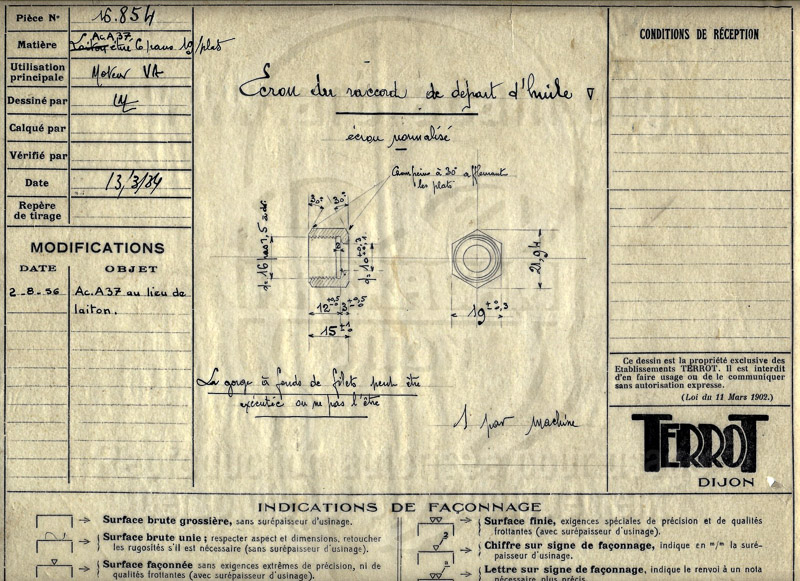 Pièce N° 16.854
Matière Ac.A37.
Laiton étiré 6 pans 19/plat
Utilisation principale Moteur VA
Dessiné par
Calqué par
Vérifié par
Date 13/3/34
Repère de tirage
MODIFICATIONS
DATE OBJET
2-8-56 Ac.A37 au lieu de
laiton.
Ecrou du raccord de départ d'huile ▽
écrou normalisé
Chanfreins à 30° affleurant
les plats
30° 30°
d=16 pas 1,5
d=10 +0,3
12 +0,5 3 +0,5
15 ±1
21,94
19 ±0,3
La gorge à fonds de filets peut être
exécutée ou ne pas l'être
1 par machine
CONDITIONS DE RÉCEPTION
Ce dessin est la propriété exclusive des
Etablissements TERROT. Il est interdit
d'en faire usage ou de le communiquer
sans autorisation expresse.
(Loi du 11 Mars 1902.)
TERROT
DIJON
INDICATIONS DE FAÇONNAGE
Surface brute grossière, sans surépaisseur d'usinage.
Surface brute unie ; respecter aspect et dimensions, retoucher
les rugosités s'il est nécessaire (sans surépaisseur d'usinage).
Surface façonnée sans exigences extrêmes de précision, ni de
qualités frottantes (avec surépaisseur d'usinage).
Surface finie, exigences spéciales de précision et de qualités
frottantes (avec surépaisseur d'usinage).
3 Chiffre sur signe de façonnage, indique en m/m la suré-
paisseur d'usinage.
a Lettre sur signe de façonnage, indique le renvoi à un nota
nécessaire plus précis.